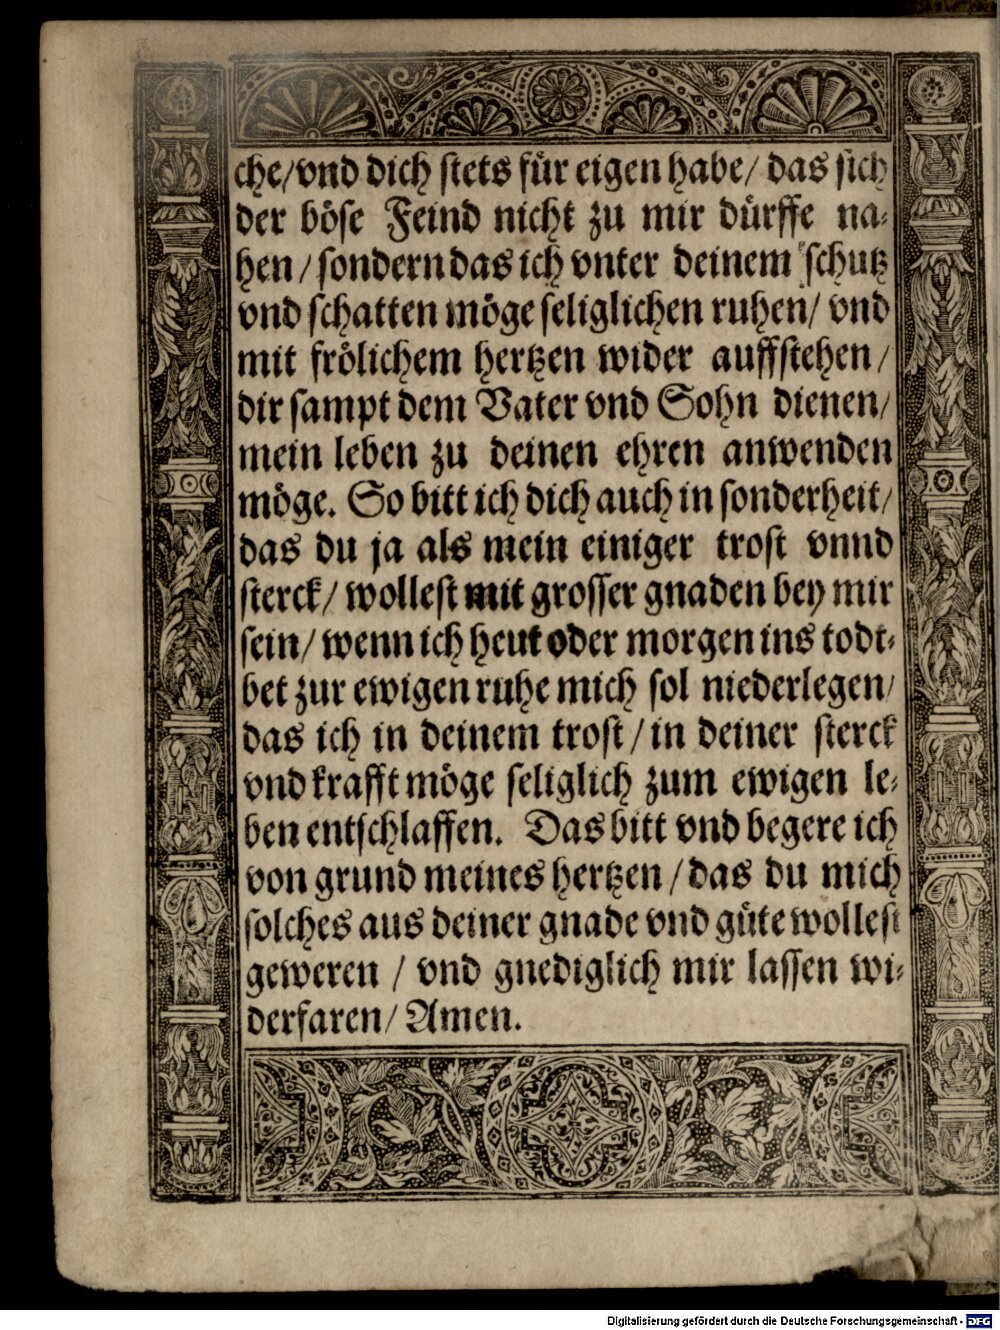 che/vnd dich stets für eigen habe/ das sich
der böse Feind nicht zu mir dürffe na-
hen/sondern das ich vnter deinem schutz
vnd schatten möge seliglichen ruhen/ vnd
mit frölichem hertzen wider auffstehen/
dir sampt dem Vater vnd Sohn dienen/
mein leben zu deinen ehren anwenden
möge. So bitt ich dich auch in sonderheit/
das du ja als mein einiger trost vnnd
sterck/ wollest mit grosser gnaden bey mir
sein/ wenn ich heut oder morgen ins todt-
bet zur ewigen ruhe mich sol niederlegen/
das ich in deinem trost/in deiner sterck
vnd krafft möge seliglich zum ewigen le-
ben entschlaffen. Das bitt vnd begere ich
von grund meines hertzen/das du mich
solches aus deiner gnade vnd güte wollest
geweren / vnd gnediglich mir lassen wi-
derfaren/ Amen.
Digitalisierung gefördert durch die Deutsche Forschungsgemeinschaft - DFG